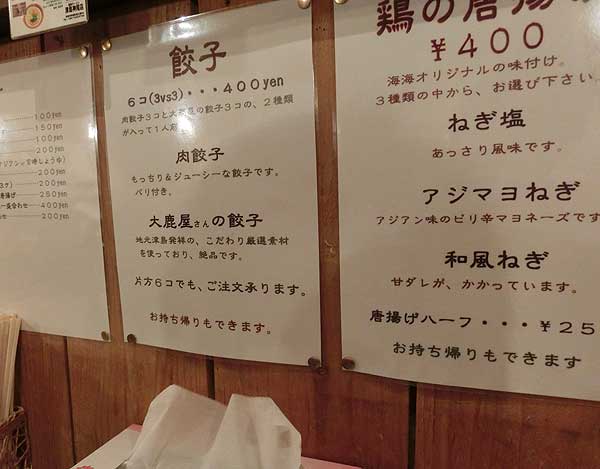 100yen
150yen
100yen
200yen
200yen
200yen
250yen
400yen
200yen
餃子
6コ(3vs3)・・・400yen
肉餃子3コと大鹿屋の餃子3コの、2種類
が入って1人前
肉餃子
もっちり&ジューシーな餃子です。
パリ付き。
大鹿屋さんの餃子
地元津島発祥の、こだわり厳選素材
を使っており、絶品です。
片方6コでも、ご注文承ります。
お持ち帰りもできます。
鶏の唐揚
¥400
海海オリジナルの味付け。
3種類の中から、お選び下さい
ねぎ塩
あっさり風味です。
アジマヨねぎ
アジアン味のピリ辛マヨネーズです
和風ねぎ
甘ダレが、かかっています。
唐揚げハーフ・・・¥25
お持ち帰りもできます